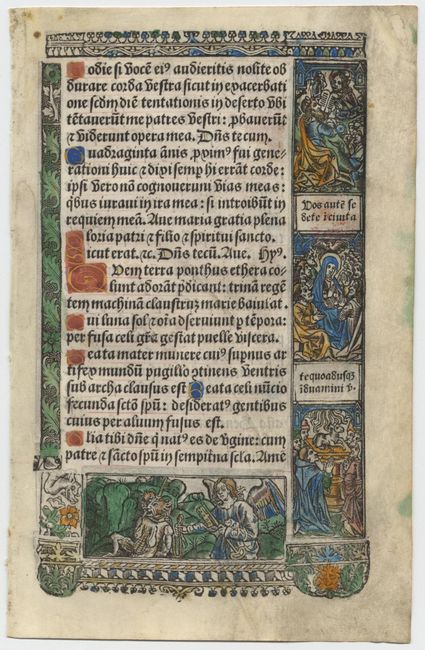 odie si vocē ei⁹ audieritis nolite ob
durare corda vestra sicut in exacerbati
one scd̄m diē tentationis in deserto vbi
tētaverūt me patres vestri: ꝓbaverūt
⁊ viderunt opera mea. Dn̄s tecum.
Quadraginta ānis ꝓxim⁹ fui gene-
rationi huic ⁊ dixi semp hi errāt corde:
ipsi vero nō cognoverunt vias meas:
qb⁹ iuravi in ira mea: si introibūt in
requiem meā. Ave maria gratia plena
loria patri ⁊ filio ⁊ spiritui sancto.
icut erat. ⁊c. Dn̄s tecū. Ave. Hy⁹.
Quem terra ponthus ethera co-
lunt adorāt p̄dicant: trinā regē
tem machinā claustrū marie baiulat.
ui luna sol ⁊ oīa deserviunt ꝑ tēpora:
per fusa celi gr̄a gestāt puelle viscera.
eata mater munere cui⁹ supnus ar
tifex mundū pugillo ɔtinens ventris
sub archa clausus est Beata celi nūcio
fecunda sctō spū: desiderat⁹ gentibus
cuius per alvum fusus est.
lia tibi dn̄e q̄ nat⁹ es de v̄gine: cum
patre ⁊ sācto spū in sempit̄na scl̄a. Amē
Vos autē se
dete ī civita
te quoadusqꝫ
īduamini v.